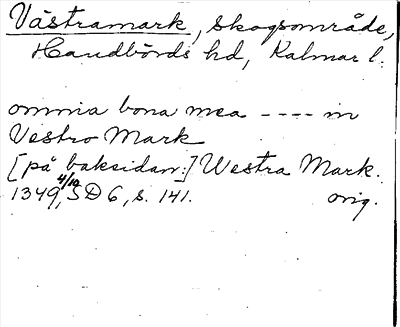 Västramark, Skogsområde,
Handbörds hd, Kalmar l.
omnia bona mea ---- in
Vestro Mark
[på baksidan:] Westra Mark.
1349 4/10, SD 6, s. 141. orig.